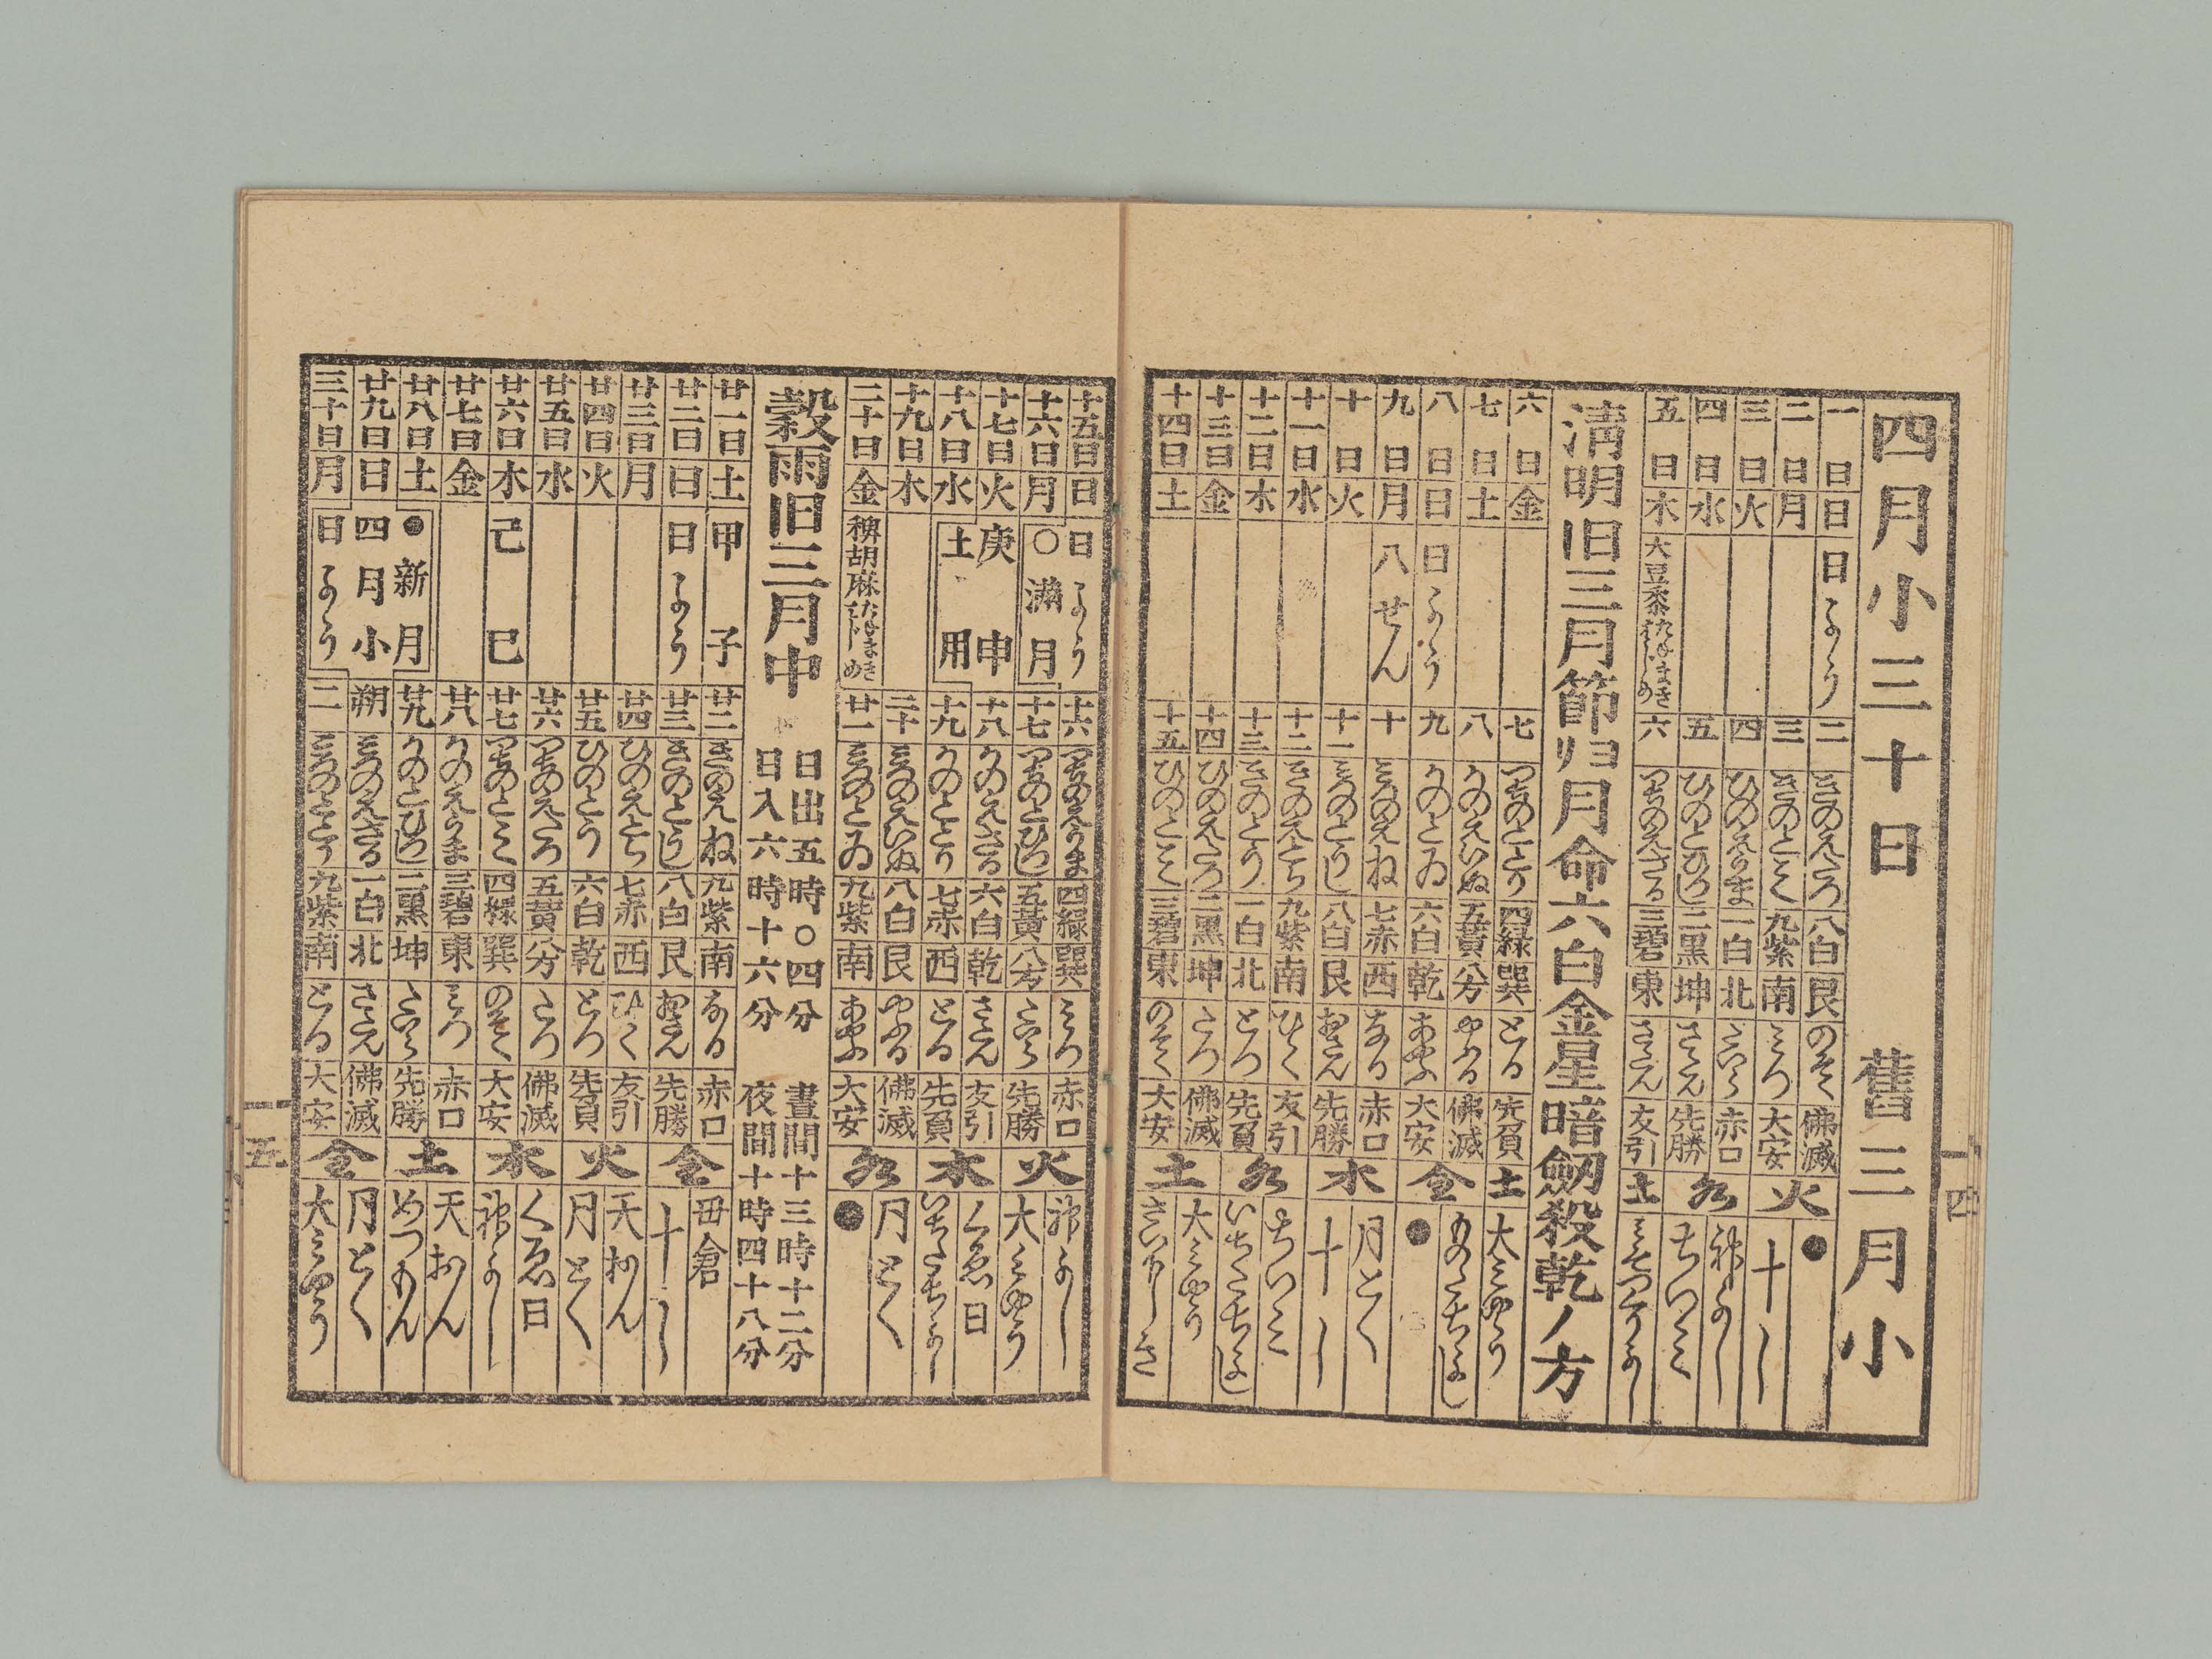 四月小三十日 舊三月小
一日 日 日よう 二 きのえたつ 八白 艮 のぞく 佛滅 火 ●
二日 月 三 きのとみ 九紫 南 みつ 大安 十し
三日 火 四 ひのえうま 一白 北 たいら 赤口 水 神よし
四日 水 五 ひのとひつじ 二黒 坤 さたん 先勝 ちいみ
五日 木 大豆黍たねまきはじめ 六 つちのえさる 三碧 東 さたん 友引 土 みそつケよし
清明旧三月節ヨリ月命六白金星暗劔殺乾ノ方
六日 金 七 つちのととり 四緑 巽 とる 先負 土 大みやう
七日 土 八 かのえいぬ 五黄 八方 やふる 佛滅 金 ものたちよし
八日 日 日よう 九 かのとゐ 六白 乾 あやふ 大安 ●
九日 月 八せん 十 みつのえね 七赤 西 なる 赤口 木 月とく
十日 火 十一 みつのとうし 八白 艮 おさん 先勝 十し
十一日 水 十二 きのえとら 九紫 南 ひらく 友引 水 ちいみ
十二日 木 十三 きのとう 一白 北 とつ 先負 いちたちよし
十三日 金 十四 ひのえたつ 二黒 坤 たつ 佛滅 土 大みやう
十四日 土 十五 ひのとみ 三碧 東 のぞく 大安
一四
十五日 日 日よう 十六 つちのえうま 四緑 巽 みつ 赤口 火 神よし
十六日 月 〇満月 十七 つちのとひつじ 五黄 八方 たいら 先勝 大みやう
十七日 火 庚申 十八 かのえさる 六白 乾 さたん 友引 木 くゑ日
十八日 水 土用 十九 かのととり 七赤 西 とる 先負 いちたちよし
十九日 木 二十 みつのえいぬ 八白 艮 やふる 佛滅 水 月とく
二十日 金 稗胡麻たねまきはじめ 廿一 みつのとゐ 九紫 南 あやふ 大安 ●
穀雨旧三月中 日出五時〇四分 晝間十三時十二分
日入六時十六分 夜間十時四十八分
廿一日 土 甲子 廿二 きのえね 九紫 南 なる 赤口 金 母倉
廿二日 日 日よう 廿三 きのとうし 八白 艮 おさん 先勝 十し
廿三日 月 廿四 ひのえとら 七赤 西 ひらく 友引 火 天おん
廿四日 火 廿五 ひのとう 六白 乾 とつ 先負 月とく
廿五日 水 廿六 つちのえたつ 五黄 八方 たつ 佛滅 木 くゑ日
廿六日 木 己巳 廿七 つちのとみ 四緑 巽 のぞく 大安 神よし
廿七日 金 廿八 かのえうま 三碧 東 みつ 赤口 土 天おん
廿八日 土 ●新月 廿九 かのとひつじ 二黒 坤 たいら 先勝 めつもん
廿九日 日 四月小 朔 みつのえさる 一白 北 さたん 佛滅 金 月とく
三十日 月 日よう 二 みつのととり 九紫 南 とる 大安 大みやう
一五